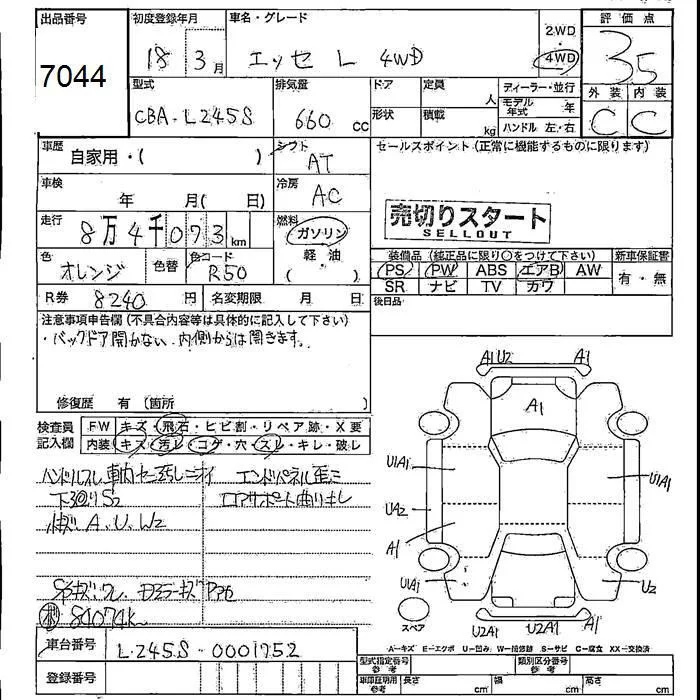 出品番号
7044
初度登録年月
18 3月
車名・グレード
エッセ L 4WD
2WD
4WD
評価点
3.5
外装 内装
C C
型式
CBA-L245S
排気量
660 cc
ドア
形状
定員
人
積載
kg
ディーラー・並行
モデル年式 年
ハンドル 左・右
車歴
自家用・( )
シフト
AT
セールスポイント(正常に機能するものに限ります)
売切りスタート
SELLOUT
車検
年 月( 日)
冷房
AC
走行
8万4千073km
燃料
ガソリン
軽油
( )
色
オレンジ
色替
色コード
R50
装備品(純正品に限り○をつけて下さい)
PS PW ABS エアB AW
SR ナビ TV カワ
新車保証書
有・無
R券 8240円
名変期限 月 日
後日品
注意事項申告欄(不具合内容等は具体的に記入して下さい)
・バックドア開かない 内側からは開きます。
修復歴 有(箇所
検査員記入欄
FW キズ・飛石・ヒビ割・リペア跡・X要
内装 キズ・汚レ・コゲ・穴・スレ・キレ・破レ
ハンドルスレ 車内
エンドパネル歪ミ
下廻りS2
コアサポート曲り
A、U、W2
84074k
車台番号
L245S-0001752
登録番号
A1 U2 A1
A1
U1A1
U1A1
UA2
A1
U1A1
U2
スペア
U2A1 U2A1 A1
A-キズ E-エクボ U-凹み W-補修跡 S-サビ C-腐食 XX-交換済
型式指定番号
参考
類別区分番号
参考
車庫証明用
参考
長さ cm
幅 cm
高さ cm